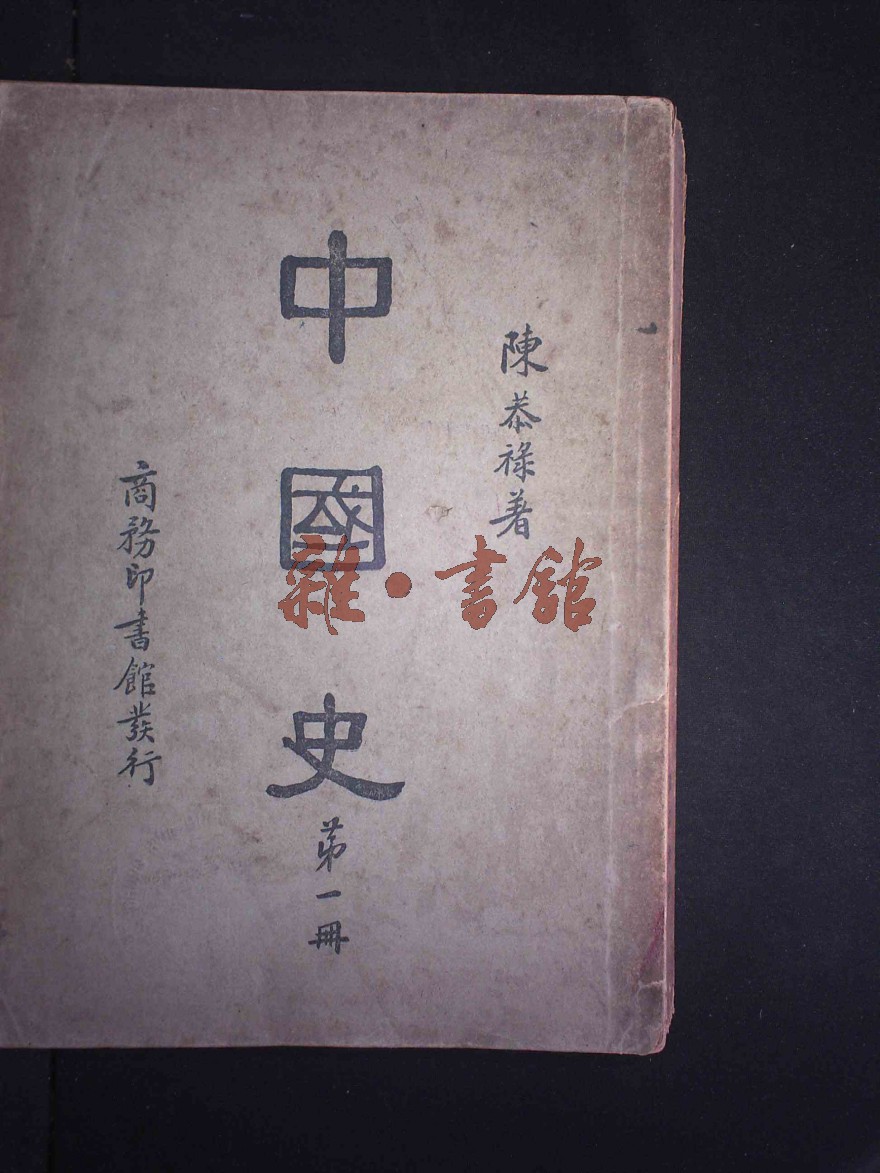 陳恭祿著
中國史
第一冊
商務印書館發行
雜·書館